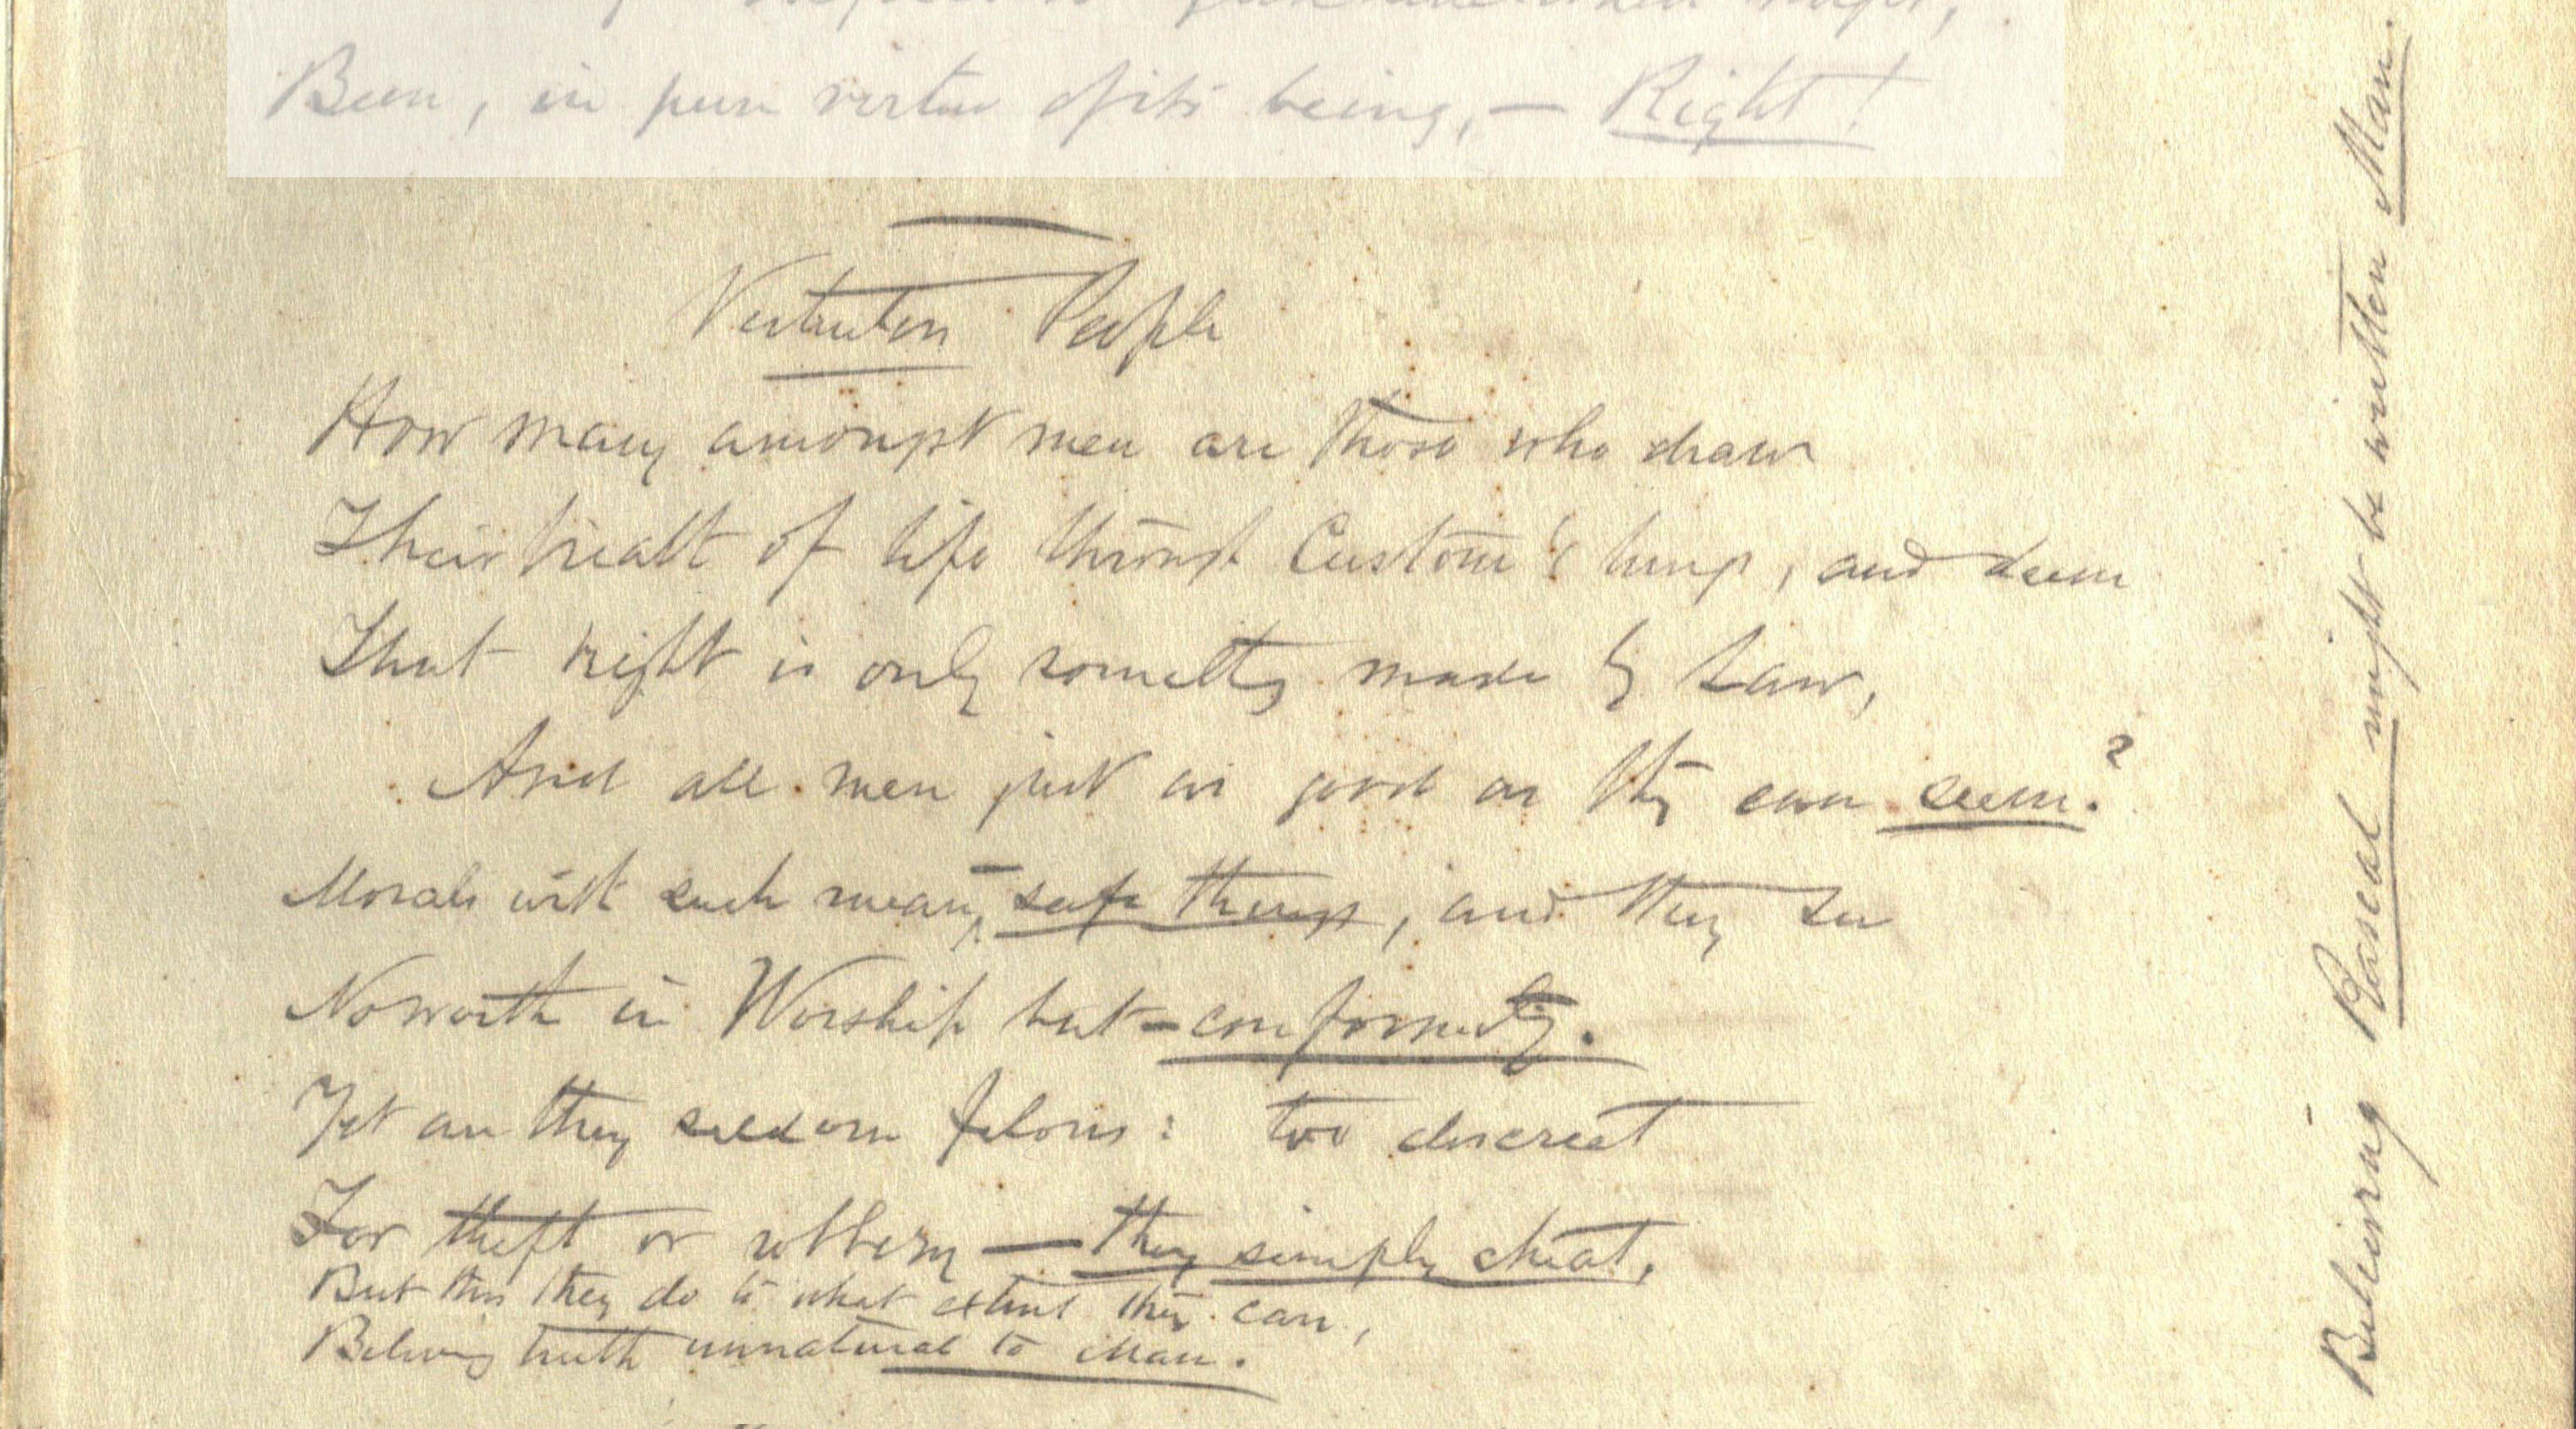 Been, in pure virtue of its being, — Right!
People
How many amongst men are those who draw
Their breath of life through Custom's lungs, and deem
That right is only something made by Law,
And all men just as good as they can seem?
Morals with such mean, safe things, and they see
No worth in Worship but — conformity.
Yet are they seldom felons: too discreet
For theft or robbery — they simply cheat,
But this they do to what extent they can,
Believing truth unnatural to Man.
Believing Rascal might be written Man.